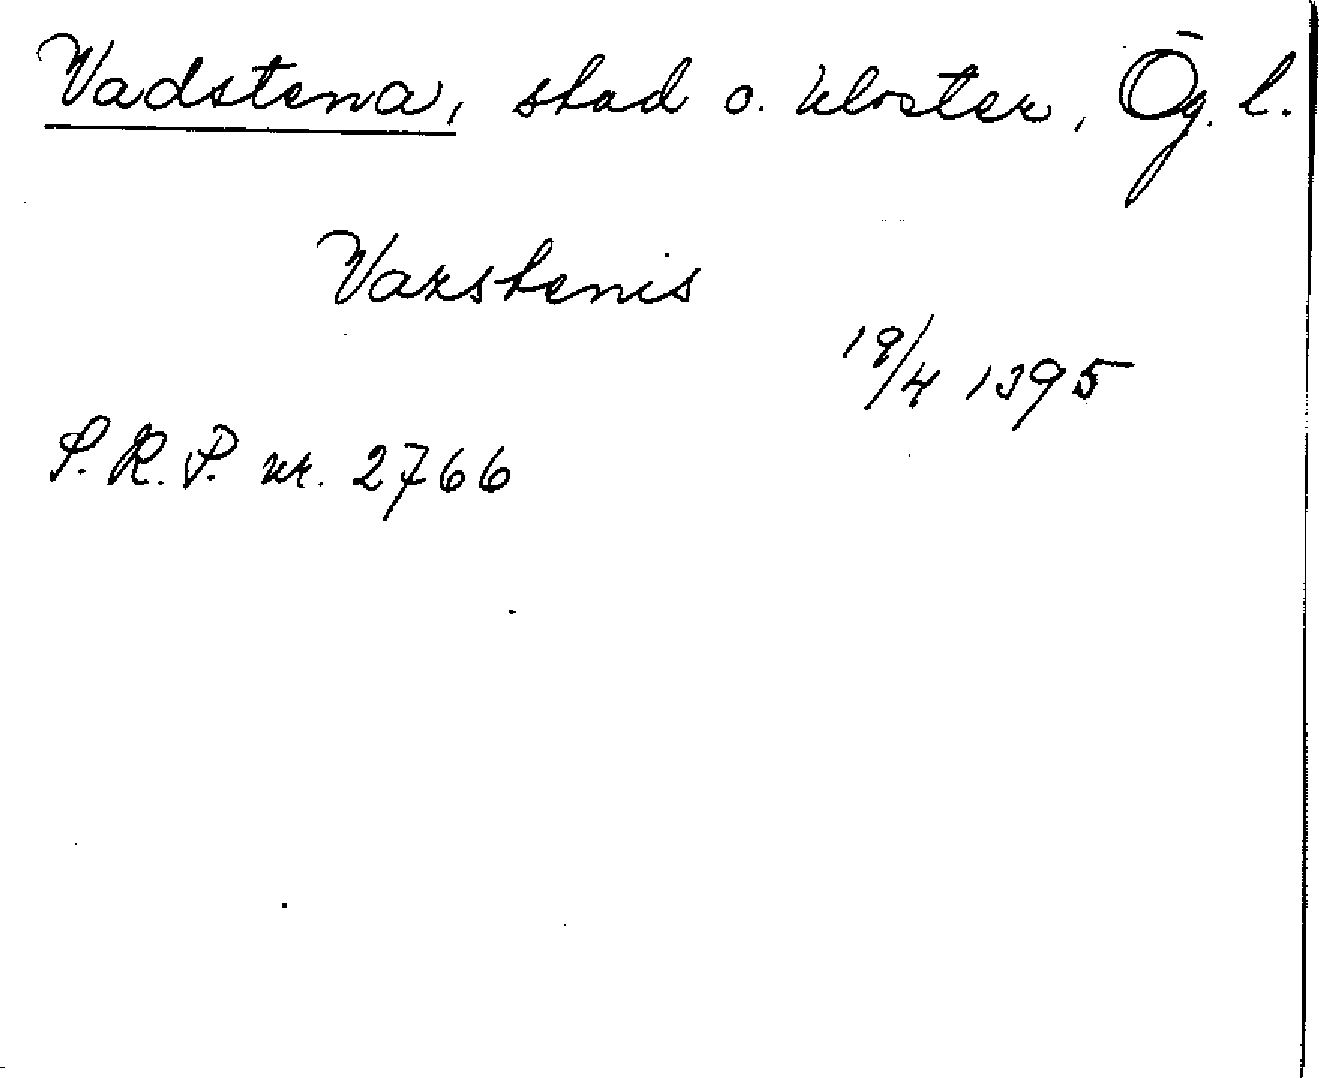 Vadstena, stad o. kloster, Ög. l.
Vazstenis
19/4 1395
S.R.P. nr. 2766